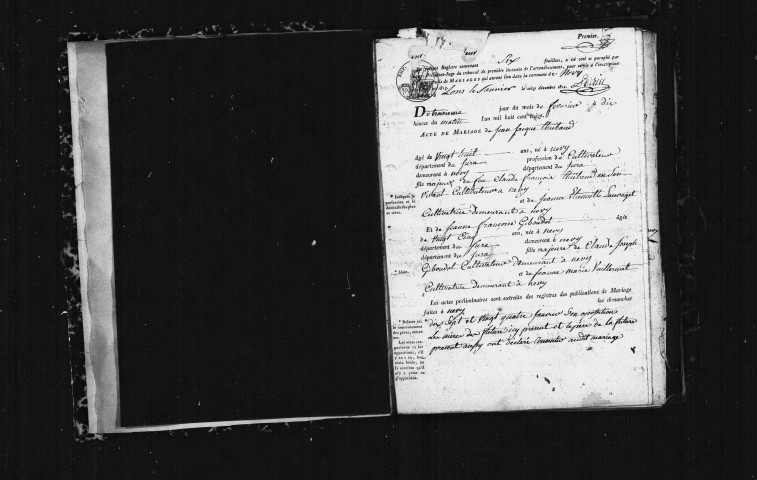 Premier.
Six feuillets, a été coté et paraphé par
Président-Juge du tribunal de première instance de l'arrondissement, pour servir à l'inscription
de MARIAGES qui auront lieu dans la commune de Nevy
Lons le Saunier le seize décembre
Du troisieme jour du mois de fevrier à dix
heures du matin l'an mil huit cent
ACTE DE MARIAGE de Jean Jacque Thiebaud
âgé de Vingt huit ans, né à nevy
département du Jura profession de Cultivateur
demeurant à nevy département du Jura
fils majeur de feu Claude François Thiebaud
Vivant Cultivateur a nevy
et de jeanne Sauvaget
Cultivatrice demeurant à nevy
Et de jeanne françoise Giboudot âgée
de vingt Cinq ans, née à nevy
département du Jura demeurant à nevy
département du Jura fille majeure de Claude Joseph
Giboudot Cultivateur demeurant à nevy
et de jeanne marie Vuillermet
Cultivatrice demeurant à nevy
Les actes préliminaires sont extraits des registres des publications de Mariage
faites à nevy les dimanches
dix Sept et vingt quatre Janvier San opposition
La mère du futur icy present et le père de la future
present aussy ont déclaré Consentir audit mariage
* Indiquer la
profession et le
domicile des père
et mère.
* Idem.
* Relater ici
le consentement
des pères, mères
etc.